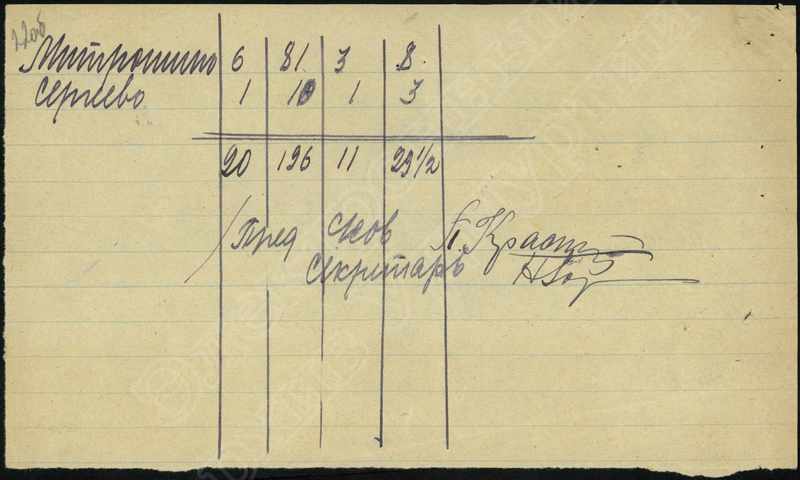 22об
Митрошино 6 81 3 8
Сергеево 1 10 1 3
20 196 11 29 1/2
Пред
Секретарь